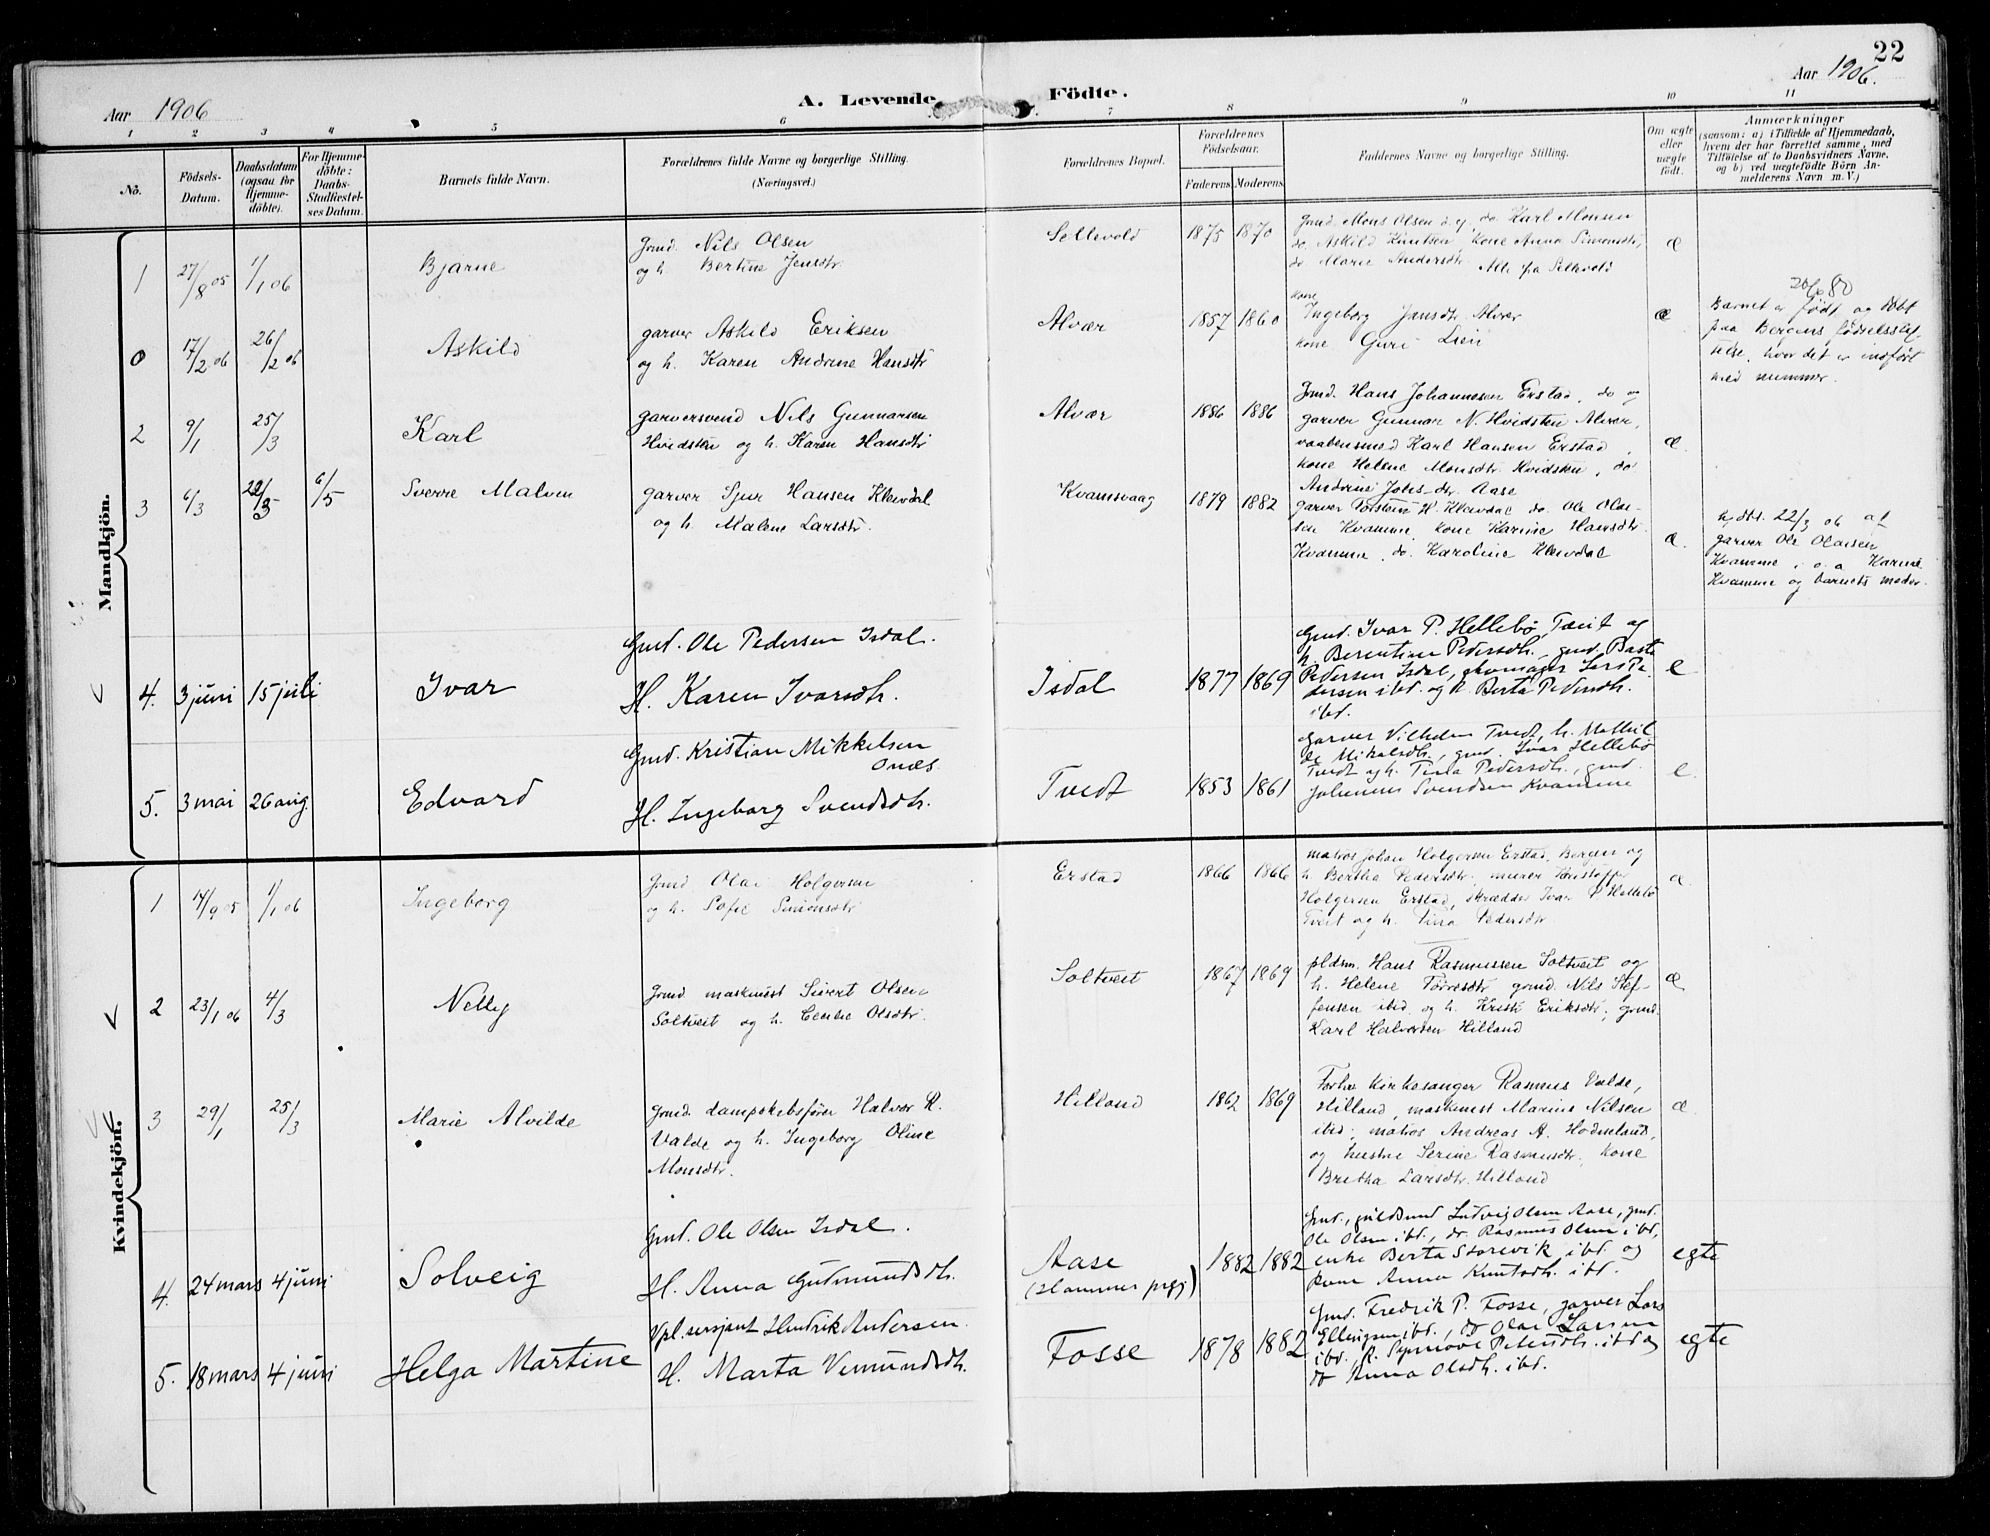 22
Aar 1906
A. Levende Födte.
Aar 1906.
1 2 3 4 5 6 7 8 9 10 11
No.
Födsels-
Datum.
Daabsdatum
(ogsaa for
Hjemme-
döbte).
For Hjemme-
döbte:
Daabs-
Stadfæstel-
ses Datum.
Barnets fulde Navn.
Forældrenes fulde Navne og borgerlige Stilling.
(Næringsvei.)
Forældrenes Bopæl.
Forældrenes
Födselsaar.
Faderens Moderens
Faddernes Navne og borgerlige Stilling.
Om ægte
eller
uægte
födt.
Anmærkninger
(saasom: a) i Tilfælde af Hjemmedaab,
hvem der har forrettet samme, med
Tilföielse af to Daabsvidners Navne,
og b) ved uægtefödte Börn An-
melderens Navn m. V.)
Mandkjön.
1 27/8 05 1/1 06 Bjarne
Grmd. Nils Olsen
og h. Bertine Jensdtr.
Sellevold 1875 1870
Grmd. Mons Olsen d. y, do. Karl Monsen
do. Askild Knutsen, kone Anna Simonsdtr,
do Marie Andersdtr. Alle fra Sellevold
æ
0 17/2 06 26/2 06 Askild
garver Askild Eriksen
og h. Karen Andrine Hansdtr
Alvær 1857 1860
kone
Ingeborg Jansdtr Alver
kone Guri Lien
æ
Barnet er født og døbt
paa Bergens fødselsstif-
telse, hvor det er indført
med nummer.
2 9/1 25/3 Karl
garversvend Nils Gunnarsen
Hvidsten og h. Karen Hansdtr
Alvær 1886 1886
Grmd. Hans Johannesen Erstad, do og
garver Gunnar N. Hvidsten Alver,
vaabensmed Karl Hansen Erstad,
kone Helene Monsdtr. Hvidsten, do
Andrine Johs-dtr. Aase
æ
3 6/3 22/3 6/5 Sverre Malvin
garver Sjur Hansen Kleivdal
og h. Malene Larsdtr.
Kvamsvaag 1879 1882
garver Torstein H. Kleivdal do. Ole Olai-
sen Kvamme, kone Karine Hansdtr.
Kvamme, do. Karoline Kleivdal
æ.
hj.dbt. 22/3 06 af
garver Ole Olaisen
Kvamme, o. a. Karine
Kvamme og barnets moder.
4. 3 juni 15 juli Ivar
Gmd. Ole Pedersen Isdal.
H. Karen Ivarsdtr.
Isdal 1877 1869
Gmd. Ivar P. Hellebö, Tveit og
h. Berentine Pedersdtr., gmd. Baste
Pedersen Isdal, skomager Lars Pe-
dersen ibd. og h. Berta Pedersdtr.
ibd.
e
5. 3 mai 26 aug. Edvard
Gmd. Kristian Mikkelsen
H. Ingeborg Svendsdtr.
Tvedt 1853 1861
Garver Vilhelm Tvedt, h. Mathil
de Mikalsdtr., gmd. Ivar Hellebö
Tvedt og h. Tina Pedersdtr., gmd.
Johannes Svendsen Kvamme
e.
Kvindekjön.
1 14/9 05 1/1 06 Ingeborg
Grmd Olai Holgersen
og h. Sofie Simonsdtr
Erstad 1866 1866
matros Johan Holgersen Erstad, Bergen og
h Bertha Pedersdtr. murer Kristoffer
Holgersen Erstad, skrædder Ivar P. Hellebö
Tveit og h. Tina Pedersdtr
æ.
2 23/1 06 4/3 Nelly
Grmd. maskinist Sivert Olsen
Soltveit og h. Cecilie Olsdtr.
Soltveit 1867 1869
pldsm. Hans Rasmussen Soltveit og
h. Helene Torresdtr grmd. Nils Stef-
fensen ibid og h. Kristi Eriksdtr, grmd.
Karl Halvorsen Hilland
æ
3 29/1 25/3 Marie Alvilde
grmd. dampskibsfører Halvor R.
Valde og h. Ingeborg Oline
Monsdtr.
Hilland 1862 1869
Forhv kirkesanger Rasmus Valde,
Hilland, maskinist Marius Nilsen
ibid, matros Andreas A. Hodneland,
og hustru Serine Rasmusdtr, kone
Bretha Larsdtr. Hilland
æ.
4. 24 mars 4 juni Solveig
Gmd. Ole Olsen Isdal.
H. Anna Gudmundsdtr.
Aase
(Hammer prgj)
1882 1882
Gmd., guldsmd Ludvig Olsen Aase, gmd.
Ole Olsen ibd., do. Rasmus Olsen ibd,
enke Berta Storevik ibd og
kone Anna Knutsdtr. ibd.
egte
5. 18 mars 4 juni Helga Martine
Vpl. sersjant Hendrik Andersen.
H. Marta Vemundsdtr.
Fosse 1878 1882
Gmd. Fredrik P. Fosse, garver Lars
Ellingsen ibd., do Olai Larsen
ibd., k. Synnöve Petersdtr. ibd og
do Anna Olsdtr. ibd.
egte